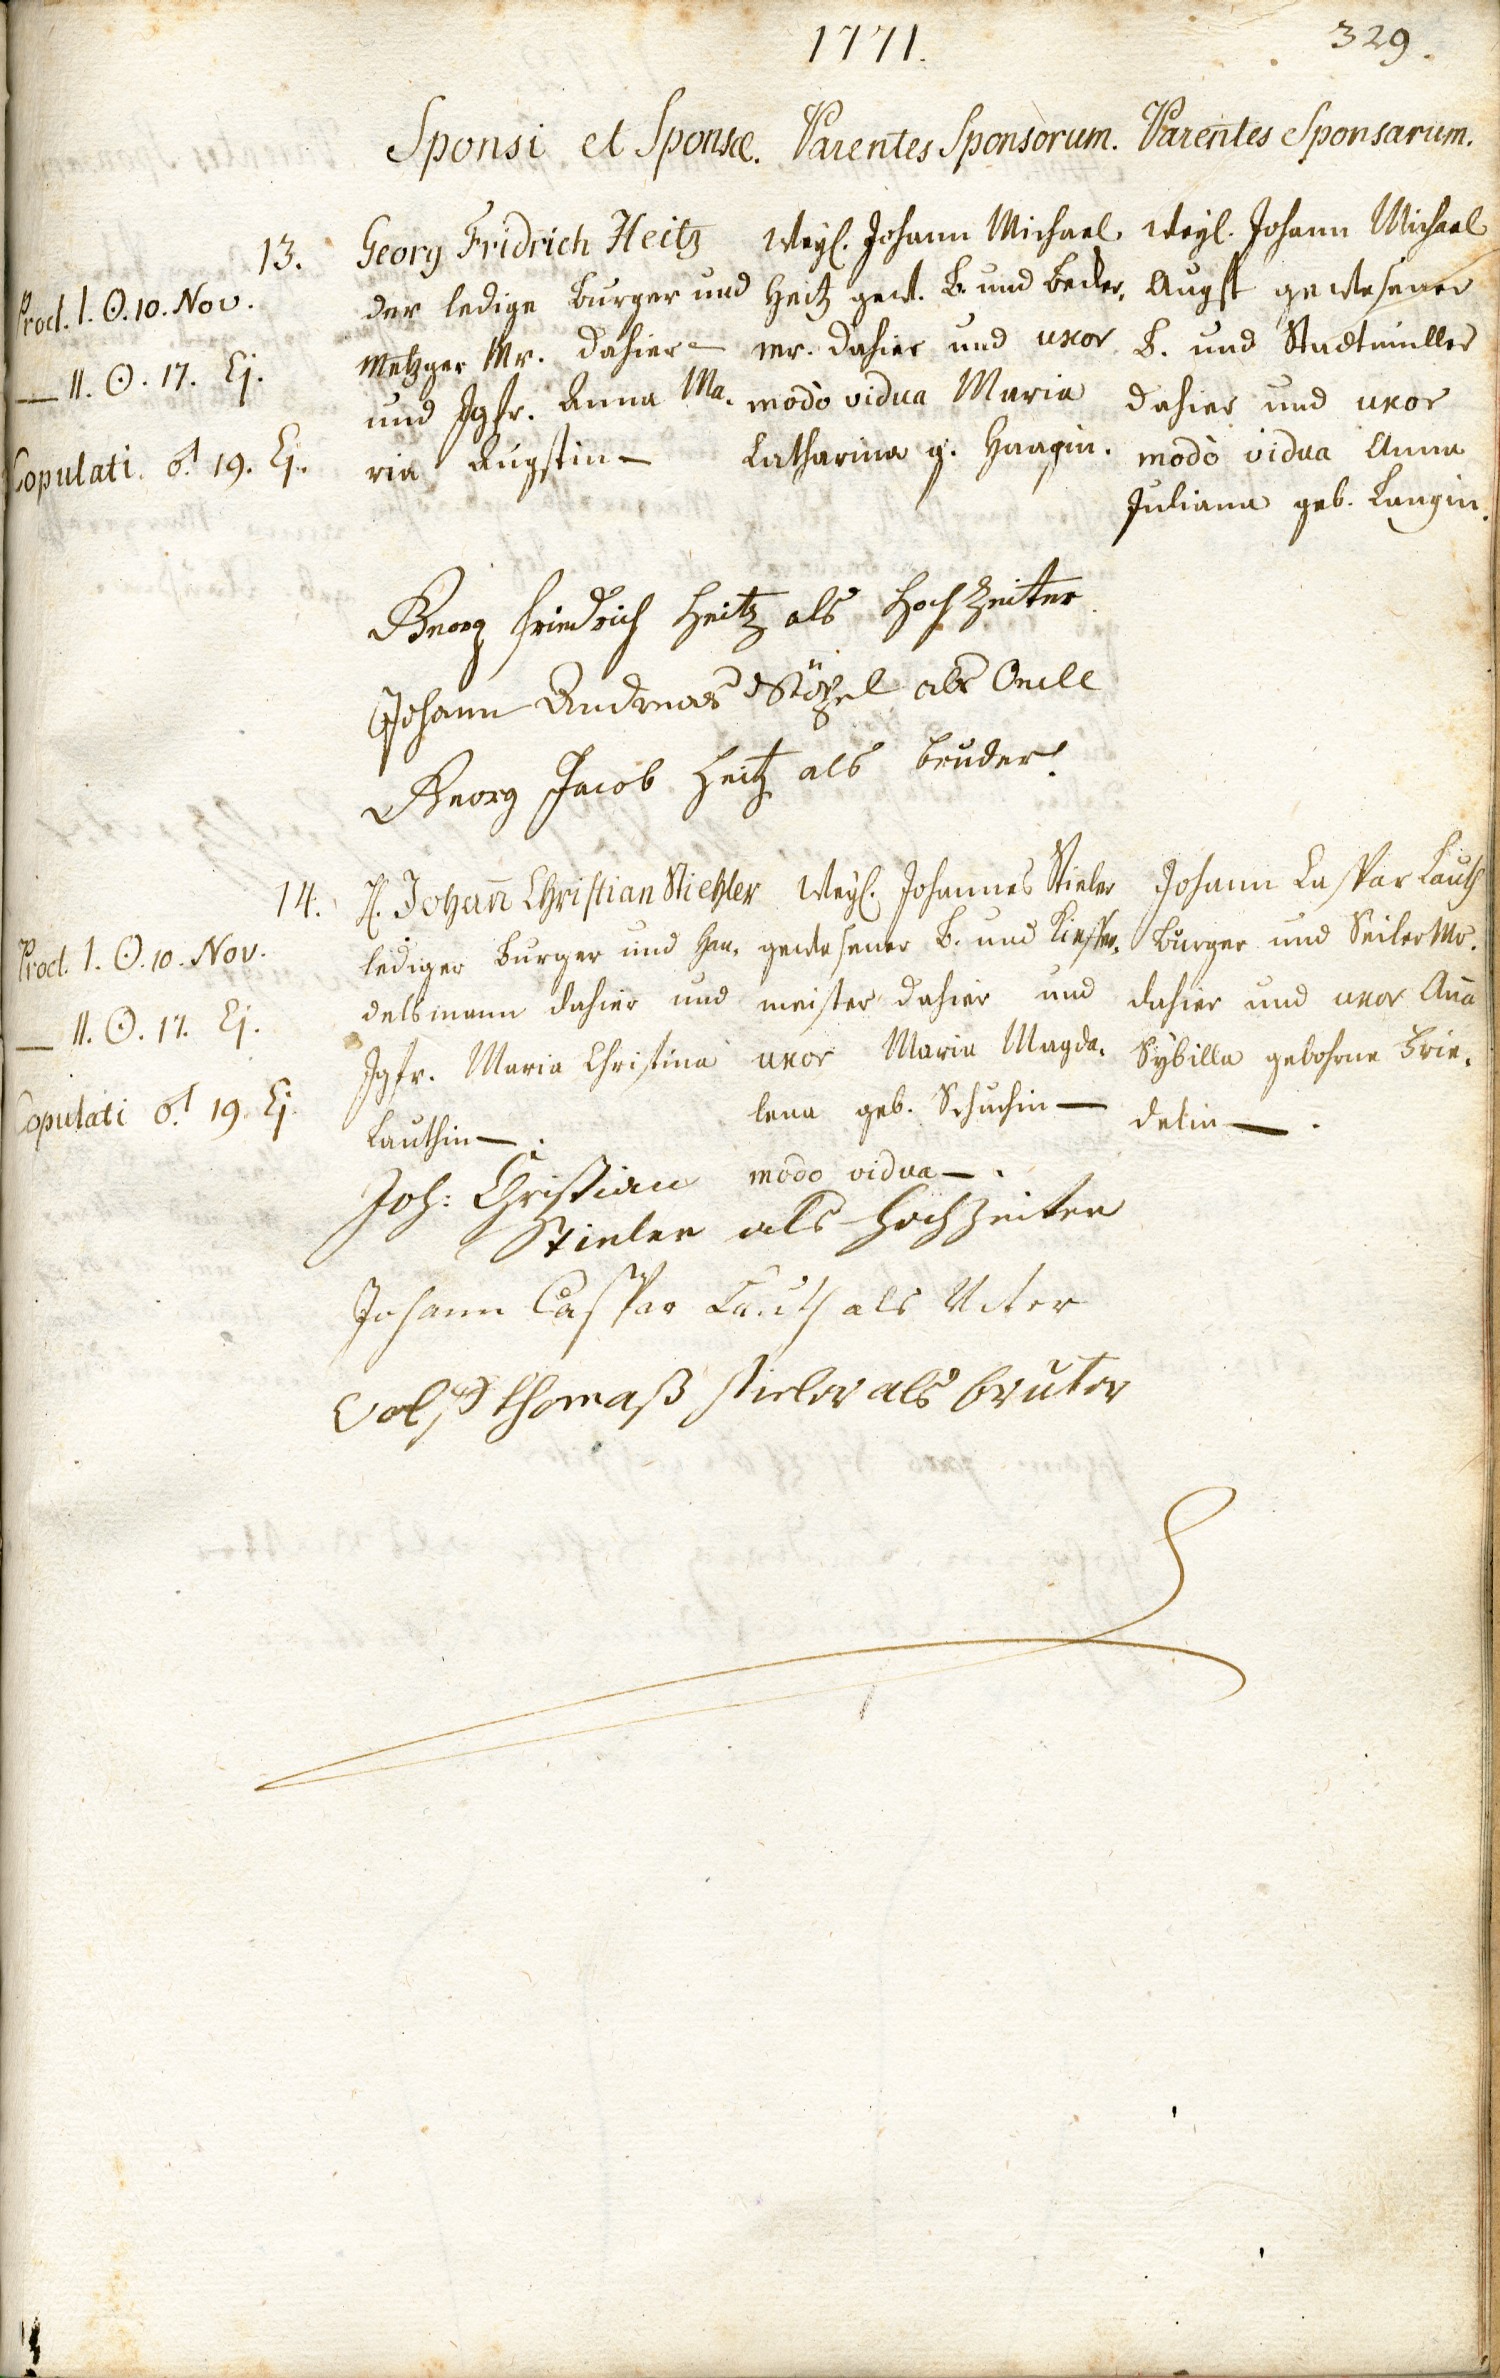 1771.
329.
Sponsi et Sponsæ. Parentes Sponsorum. Parentes Sponsarum.
13.
Procl. I. ☉. 10. Nov.
— II. ☉. 17. Ej.
Copulati ♂ 19. Ej.
Georg Fridrich Heitz
der ledige Burger und
Metzger Mr. dahier —
und Jgfr. Anna Ma-
ria Augstin —
Weyl. Johann Michael
Heitz gewt. B. und Becker-
mr. dahier und uxor
modò vidua Maria
Catharina g. Haagin.
Weyl. Johann Michael
Augst gewesener
B. und Stadtmüller
dahier und uxor
modò vidua Anna
Juliana geb. Langin.
Georg friedrich Heitz als Hochzeiter
Johann Andreas als Oncle
Georg Jacob Heitz als bruder.
14.
Procl. I. ☉. 10. Nov.
— II. ☉. 17. Ej.
Copulati ♂ 19. Ej.
H. Johann̄ Christian Stiehler
lediger Burger und Han-
delsmann dahier und
Jgfr. Maria Christina
Lauthin —.
Weyl. Johannes Stieler
gewesener B. und Kiefer-
meister dahier und
uxor Maria Magda-
lena geb. Schuchin —
modo vidua —.
Johann Caspar Lauth
Burger und Seiler Mr.
dahier und uxor Aña
Sybilla gebohrne Brie-
delin —.
Joh: Christian
Stieler als Hochzeiter
Johann Caspar Lauth als Vater
thomaß stieler als bruter